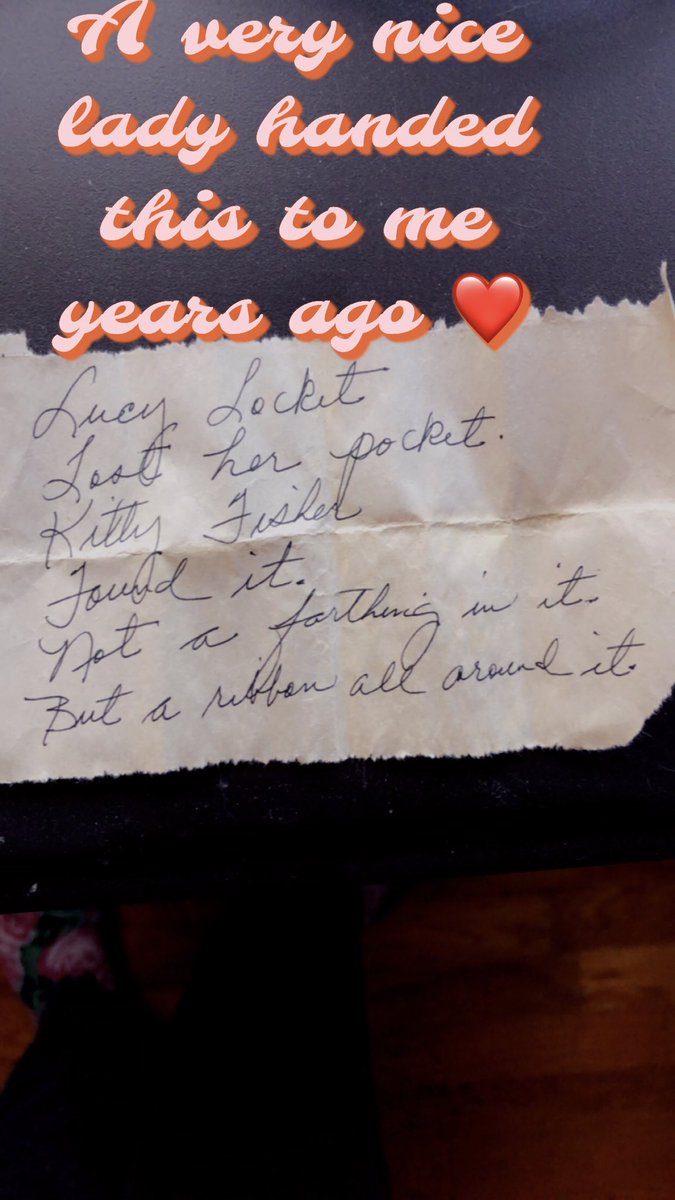 A very nice
lady handed
this to me
years ago ❤️
Lucy Locket
Lost her pocket.
Kitty Fisher
Found it.
Not a farthing in it.
But a ribbon all around it.